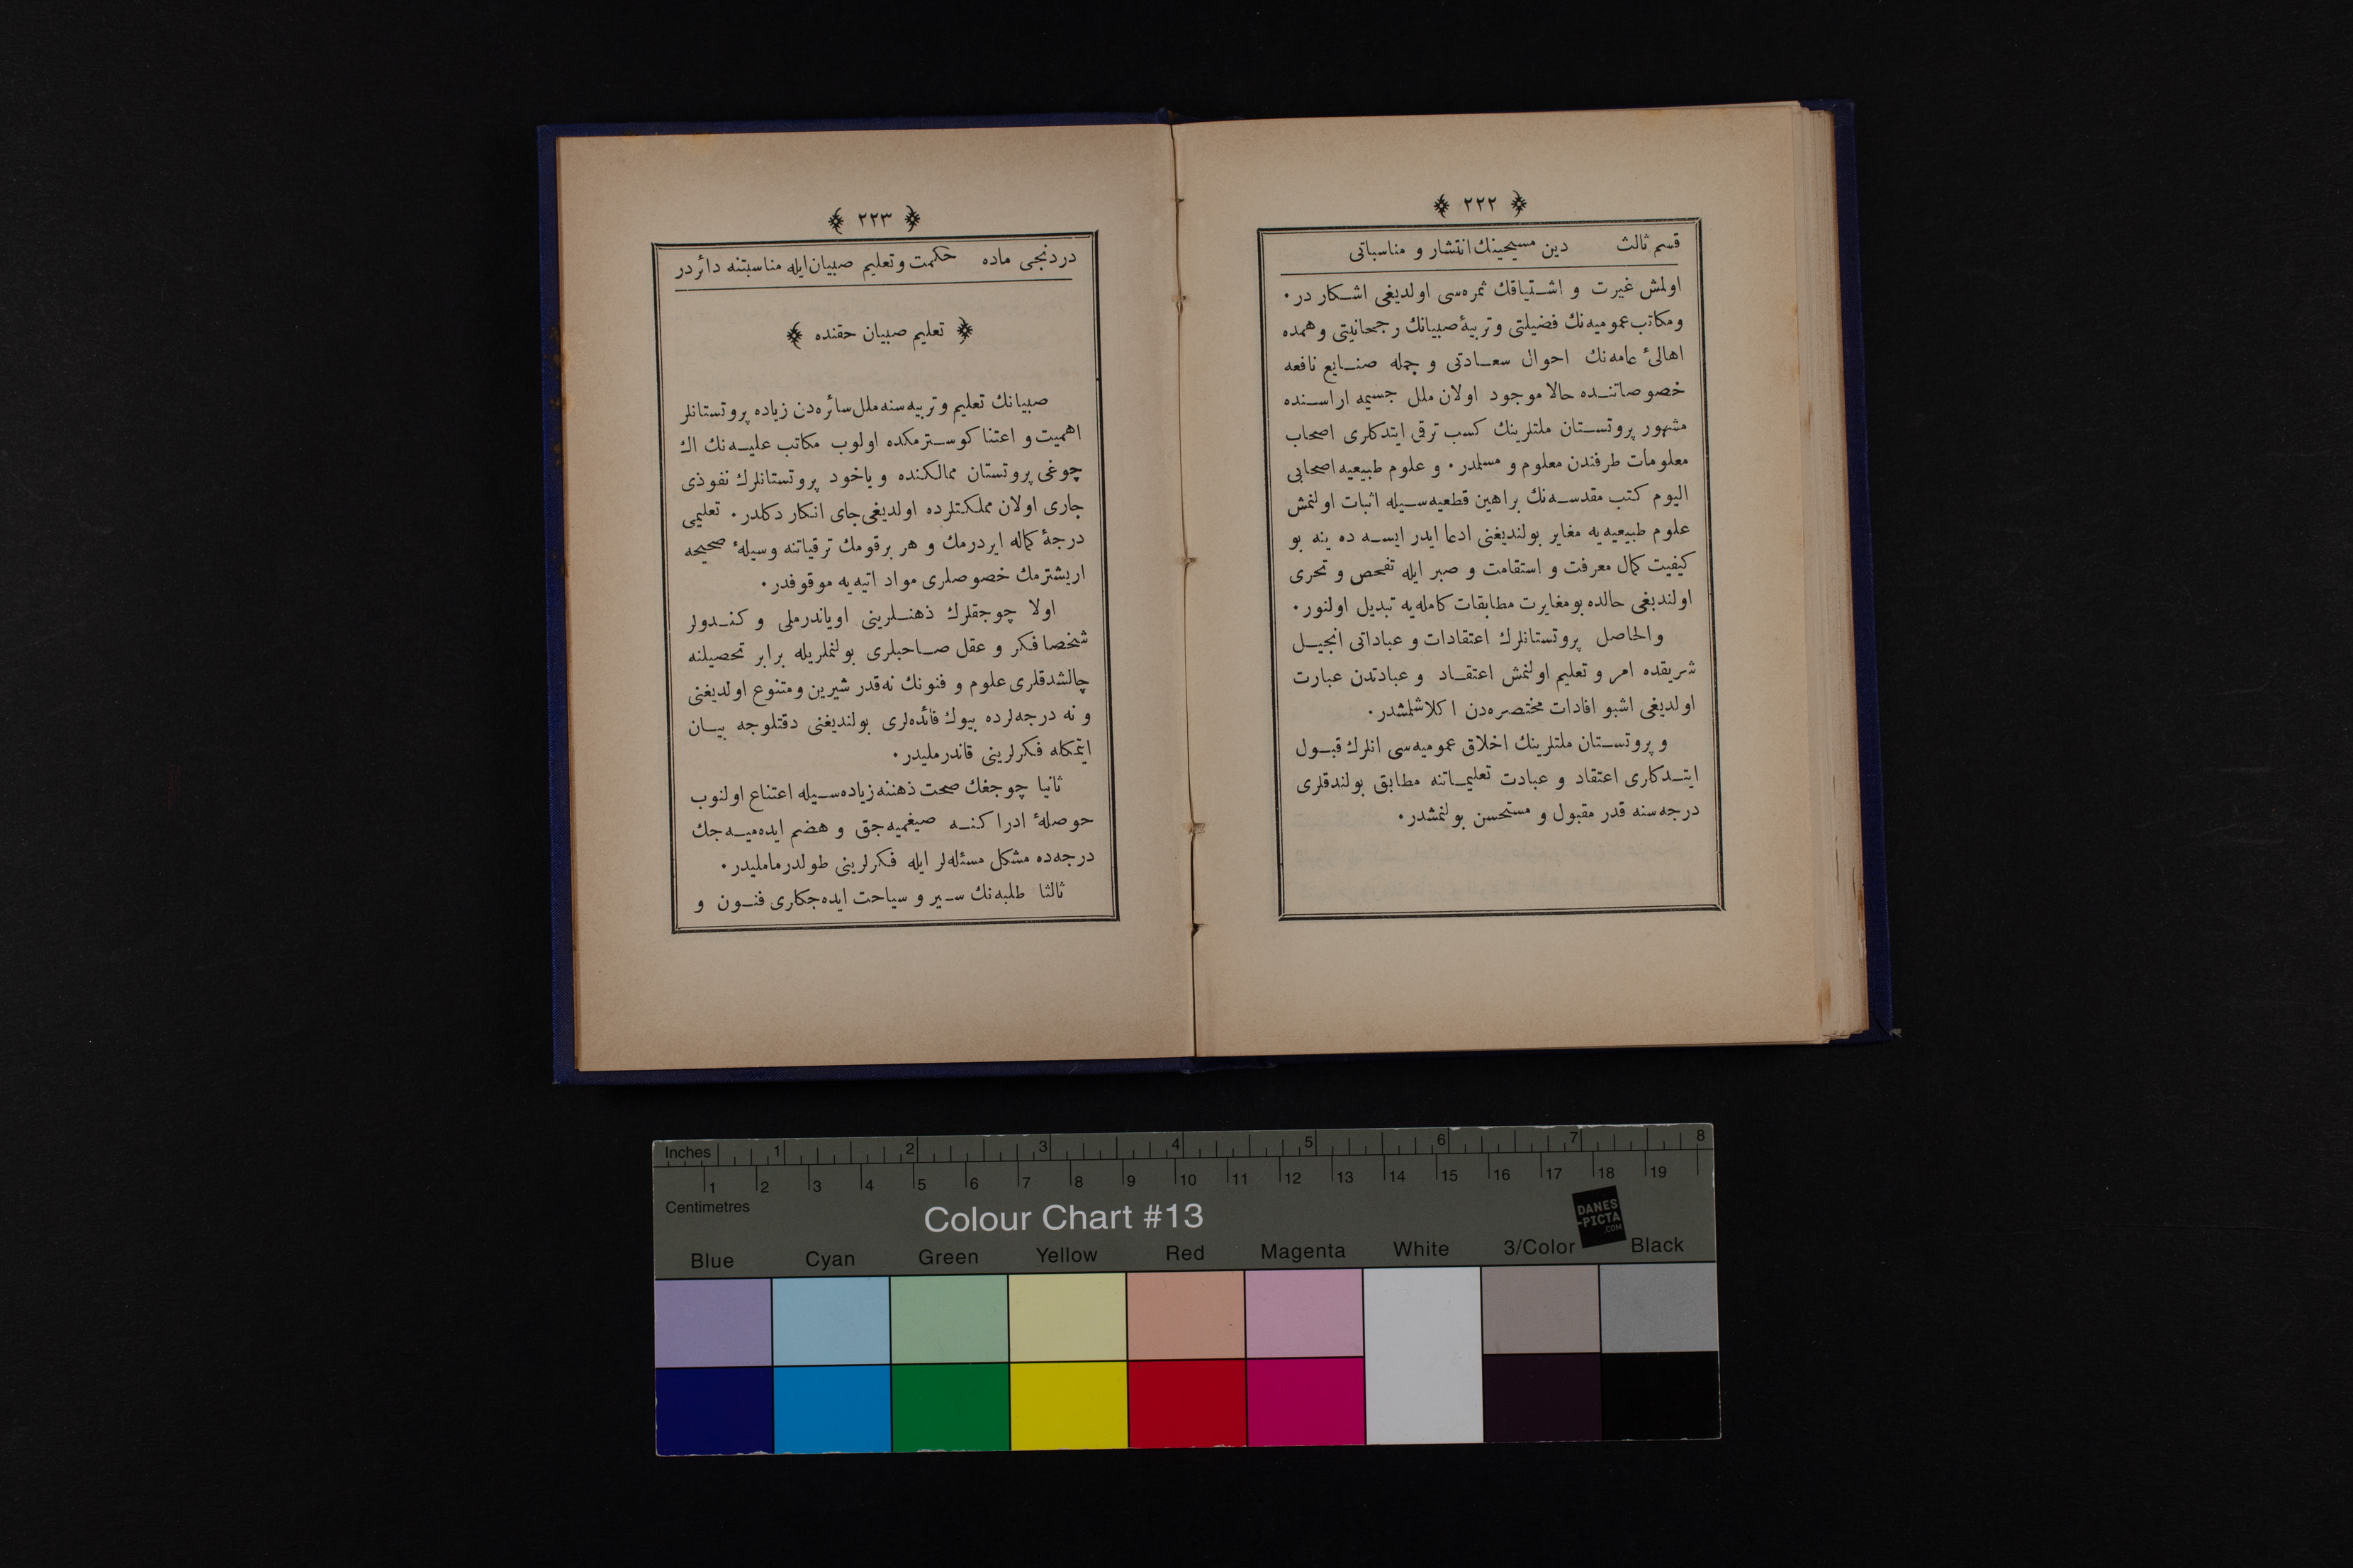 ﴿ ٢٢٢ ﴾
قسم ثالث دین مسیحینك انتشار و مناسباتی
اولمش غیرت و اشتیاقك ثمره‌سی اولدیغی اشکار در ٠
ومکاتب عمومیه‌نك فضیلتی وتربیهٔ صبیانك رجحانیتی وهمده
اهالئ عامه‌نك احوال سعادتی و جمله صنایع نافعه
خصوصاتنده حالا موجود اولان ملل جسیمه اراسنده
مشهور پروتستان ملتلرینك کسب ترقی ایتدکاری اصحاب
معلومات طرفندن معلوم و مسلمدر ٠ و علوم طبیعیه اصحابی
الیوم کتب مقدسه‌نك براهین قطعیه‌سیله اثبات اولنمش
علوم طبیعیه‌یه مغایر بولندیغنی ادعا ایدر ایسه ده ینه بو
کیفیت کمال معرفت و استقامت و صبر ایله تفحص و تحری
اولندیغی حالده بومغایرت مطابقات کامله‌یه تبدیل اولنور ٠
والحاصل پروتستانلرك اعتقادات و عباداتی انجیل
شریقده امر و تعلیم اولنمش اعتقاد و عبادتدن عبارت
اولدیغی اشبو افادات مختصره‌دن اکلاشلمشدر ٠
و پروتستان ملتلرینك اخلاق عمومیه‌سی انلرك قبول
ایتدکاری اعتقاد و عبادت تعلیماتنه مطابق بولندقلری
درجه‌سنه قدر مقبول و مستحسن بولنمشدر ٠
﴿ ٢٢٣ ﴾
دردنجی ماده حکمت وتعلیم صبیان ایله مناسبتنه دائردر
﴿ تعلیم صبیان حقنده ﴾
صبیانك تعلیم وتربیه‌سنه ملل سائره‌دن زیاده پروتستانلر
اهمیت و اعتنا کوسترمکده اولوب مکاتب علیه‌نك اك
چوغی پروتستان ممالکنده ویاخود پروتستانلرك نفوذی
جاری اولان مملکتلرده اولدیغی جای انکار دکلدر ٠ تعلیمی
درجهٔ کماله ایردرمك و هر برقومك ترقیاتنه وسیلهٔ صحیحه
اریشترمك خصوصلری مواد اتیه‌یه موقوفدر ٠
اولا چوجقلرك ذهنلرینی اویاندرملی و کندولر
شخصا فکر و عقل صاحبلری بولنملریله برابر تحصیلنه
چالشدقلری علوم و فنونك نه‌قدر شیرین ومتنوع اولدیغنی
و نه درجه‌لرده بیوك فائده‌لری بولندیغنی دقتلوجه بیان
ایتمکله فکرلرینی قاندرملیدر ٠
ثانیا چوجغك صحت ذهننه زیاده‌سیله اعتناع اولنوب
حوصلهٔ ادراکنه صیغمیه‌جق و هضم ایده‌میه‌جك
درجه‌ده مشکل مسئله‌لر ایله فکرلرینی طولدرماملیدر ٠
ثالثا طلبه‌نك سیر و سیاحت ایده‌جکاری فنون و
Inches 1 2 3 4 5 6 7 8
1 2 3 4 5 6 7 8 9 10 11 12 13 14 15 16 17 18 19
Centimetres
Colour Chart #13
DANES
-PICTA
.COM
Blue Cyan Green Yellow Red Magenta White 3/Color Black